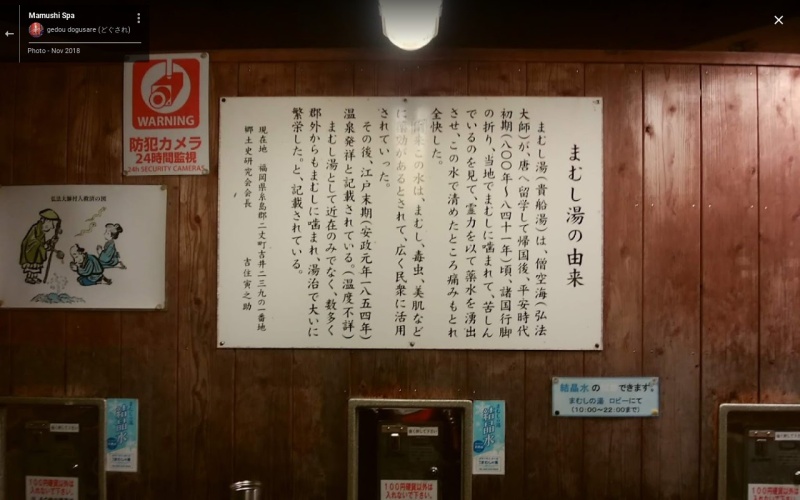 Mamushi Spa
gedou dogusare (どぐされ)
Photo - Nov 2018
WARNING
防犯カメラ
24時間監視
24h SECURITY CAMERAS
弘法大師村人救済の図
まむし湯の由来
まむし湯(貴船湯)は、僧空海(弘法
大師)が、唐へ留学して帰国後、平安時代
初期(八〇〇年～八四十一年)頃、諸国行脚
の折り、当地でまむしに噛まれて、苦しん
でいるのを見て、霊力を以て薬水を湧出
させ、この水で清めたところ痛みもとれ
全快した。
この水は、まむし、毒虫、美肌など
に効があるとされて、広く民衆に活用
されていった。
その後、江戸末期(安政元年一八五四年)
温泉発祥と記載されている。(温度不詳)
まむし湯として近在のみでなく、数多く
郡外からもまむしに噛まれ、湯治で大いに
繁栄した。と、記載されている。
現在地 福岡県糸島郡二丈町吉井二三九の一番地
郷土史研究会会長 吉住寅之助
結晶水の できます。
まむしの湯 ロビーにて
(10:00～22:00まで)
結晶水
結晶水
100円硬貨以外は
入れないで下さい。
100円硬貨以外は
入れないで下さい。
100円硬貨以外は
入れないで下さい。